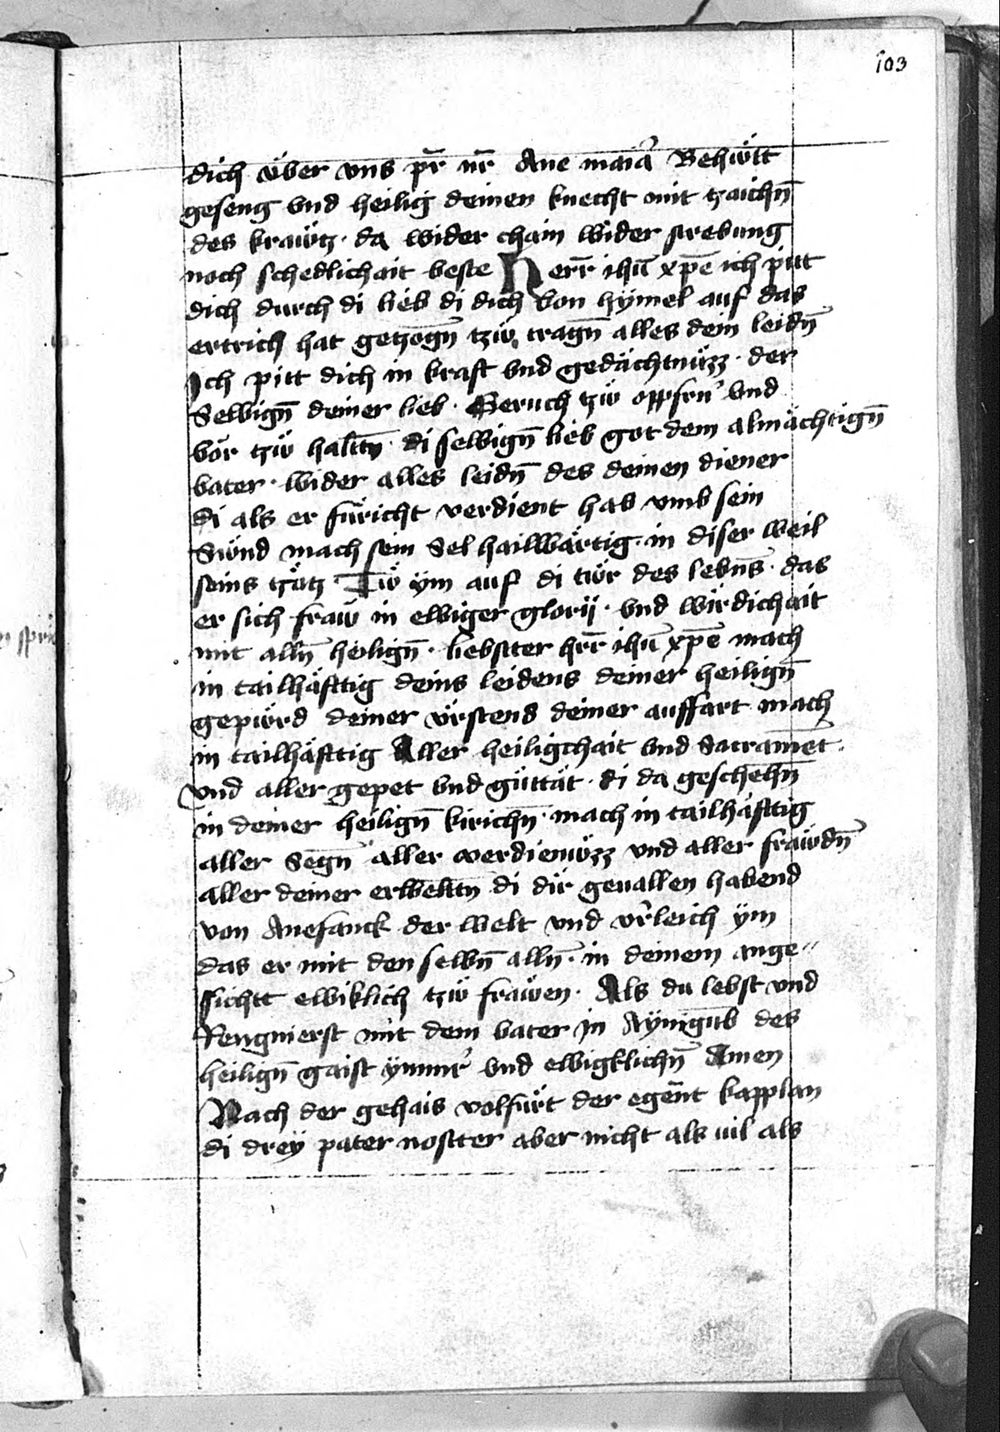 103
dich über vns pr̄ nr̄ Aue maiā Behütt
geseng vnd heilig deinen knecht mit tzaichn̄
des krawtz · da wider chain wider strebung
noch schedlichait beste Herr̄ ihū xp̄e ich pitt
dich durch di lieb di dich von hymel auf das
ertrich hat getzogn̄ tzw̋ tragn̄ alles dein leidn̄
Ich pitt dich in kraft vnd gedächtnüzz · der
Selbign̄ deiner lieb · Geruch tzw̋ opffrn̄ vnd
vor tzw̋ haltn̄ · di selbign̄ lieb got dem almächtign̄
vater · wider alles leidn̄ des deinen diener
di als er füricht verdient hab vmb sein
Sünd mach sein Sel hailwärtig · in diser weil
seins tzötz Tw̋ ym auf di tür des lebn̄s · das
er sich fraw in ewiger glorij · vnd wirdichait
mit alln̄ heilign̄ · liebster hr̄r ihū xp̄e mach
in tailhäfttig deins leidens deiner heilign̄
gepürd deiner ürstend deiner auffart mach
in tailhäfttig Aller heiligchait vnd Sacramēt ·
vnd aller gepet vnd guttät · di da geschehn̄
in deiner heilign̄ kirichn̄ · mach in tailhäfttig
aller Segn̄ aller verdienüzz vnd aller frawdn̄
aller deiner erweltn̄ di dir geuallen habend
von Anefanck der welt vnd v̄rleich ym
das er mit den selbn̄ alln̄ · in deinem ange〃
sichtt ewiklich tzw̋ frawen · Als du lebst vnd
Rengnierst mit dem vater in Aynigūb des
heilign̄ gaist ymmr̄ vnd ewigklichn̄ Amen
Nach der gehais volfürt der egen̄t kapplan
di drey pater nostter aber nicht als uil als